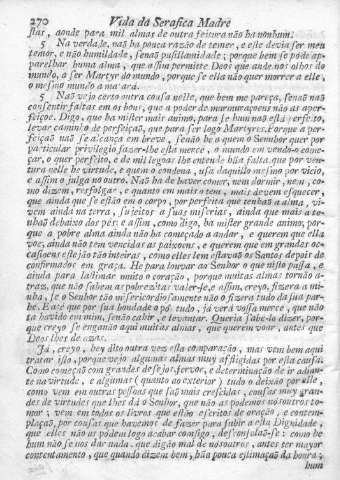 270 Vida da Serafica Madre
star, aonde para mil almas de outra feitura não ha nonhum.
5 Na verdade, naõ ha pouca razaõ de temer, e este devia ser meu
temor, e não humildade, senaõ pusillanimidade; porque bem se póde ap-
parelhar huma alma, que assim permitte Deos que ande nos olhos do
mundo, a ser Martyr do mundo, porque se ella não quer morrer a elle,
o mesmo mundo a matará.
5 Naõ vejo certo outra cousa nelle, que bem me pareça, senaõ naõ
consentir faltas em os bons, que a poder de murmuraçoens não as aper-
feiçoe. Digo, que ha mister mais animo, para se hum naõ está perfeito,
levar caminho de perfeiçaõ, que para ser logo Martyres. Porque a per-
feiçaõ naõ se alcança em breve, senão he a quem o Senhor quer por
particular privilegio fazer-lhe esta mercé, o mundo em vendo-o come-
çar, o quer perfeito, e de mil legoas lhe entende hũa falta, que por ven-
tura nelle he virtude, e quem o condena, usa daquillo mesmo por vicio,
e assim o julga no outro. Naõ ha de haver comer, nem dormir, nem, co-
mo dizem, resfolgar, e quanto em mais o tem, mais devem esquecer,
que ainda que se estão em o corpo, por perfeita que tenhaõ a alma, vi-
vem ainda na terra, sujeitos a suas miserias, ainda que mais a te-
nhaõ debaixo dos pés: e assim, como digo, ha mister grande animo, por-
que a pobre alma ainda não ha começado a andar, e querem que ella
voe; ainda não tem vencidas as paixoens, e querem que em grandes oc-
casioens estejão tão inteiras, como elles lem estavaõ os Santos depois de
confirmados em graça. He para louvar ao Senhor o que nisto passa, e
ainda para lastimar muito o coração, porque muitas almas tornão a-
traz, que não sabem as pobrezitas valer-se, e assim, creyo, fizera a mi-
nha, se o Senhor tão misericordiosamente não o fizera tudo da sua par-
te. E até que por sua bondade o pós tudo, já verá vossa mercé, que não
ha havido em mim, senão cahir, e levantar. Queria sabe-lo dizer, por-
que creyo se enganão aqui muitas almas, que querem voar, antes que
Deos lhes dé azas.
Já, creyo, hey dito outra vez esta comparação, mas vem bem aqui
tratar isto, porque vejo algumas almas muy affligidas por esta causa.
Como começaõ com grandes desejos, fervor, e determinação de ir adian-
te na virtude, e algumas (quanto ao exterior) tudo o deixão por elle,
como vem em outras pessoas que saõ mais crescidas, cousas muy gran-
des de virtudes que lhes dá o Senhor, que não as podemos nós outros to-
mar; vem em todos os livros que estão escritos de oração, e contem-
plaçaõ, por cousas que havemos de fazer para subir a esta Dignidade,
que elles não as pódem logo acabar comsigo, desconsolaõ-se: como he
hum não se nos dar nada, que digão mal de nós outros, antes ter mayor
contentamento, que quando dizem bem, hũa pouca estimaçaõ da honra;
hum